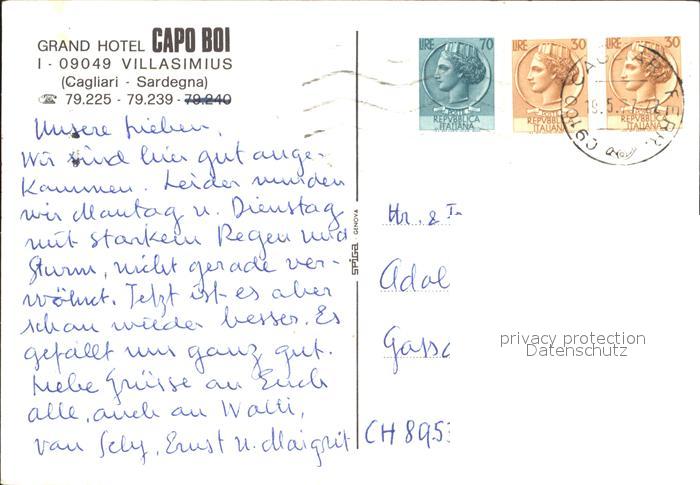 GRAND HOTEL CAPO BOI
I - 09049 VILLASIMIUS
(Cagliari - Sardegna)
79.225 - 79.239 - 79.240
Unsere Lieben,
Wir sind hier gut ange-
kommen. Leider wurden
wir Montag u. Dienstag
mit starkem Regen und
Sturm, nicht gerade ver-
wöhnt. Jetzt ist es aber
schon wieder besser. Es
gefällt uns ganz gut.
Liebe Grüsse an Euch
alle, auch an Walti,
von Ernst u. Maigrit
SPIGA GENOVA
LIRE 70
REPVBBLICA
ITALIANA
LIRE 30
REPVBBLICA
ITALIANA
LIRE 30
REPVBBLICA
ITALIANA
Hr. &
Adol
Gass
CH 8953
privacy protection
Datenschutz